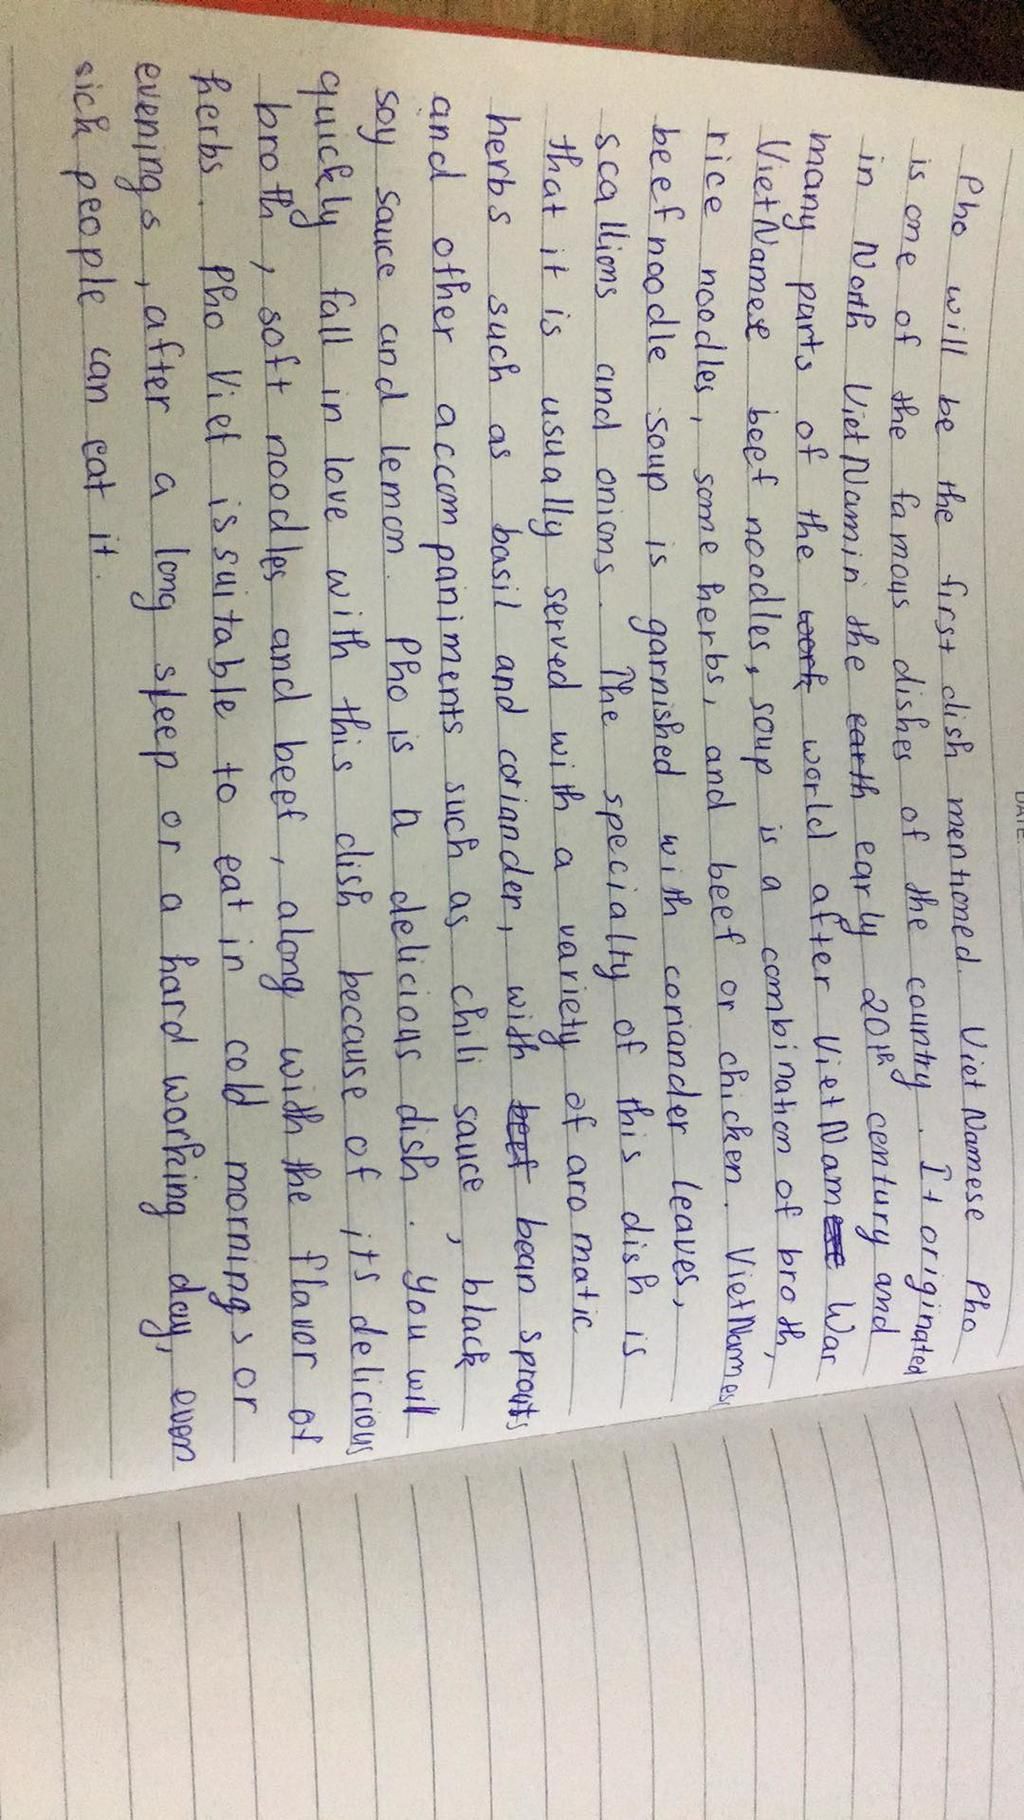 DATE
Pho will be the first dish mentioned. Viet Namese Pho
is one of the famous dishes of the country. It originated
in North Viet Nam in the earth early 20th century and
many parts of the work world after Viet Namese War
Viet Namese beef noodles, soup is a combination of broth,
rice noodles, some herbs, and beef or chicken. Viet Names
beef noodle soup is garnished with coriander leaves,
scallions and onions. The specialty of this dish is
that it is usually served with a variety of aromatic
herbs such as basil and coriander, with beef bean sprouts
and other accompaniments such as chili sauce, black
soy sauce and lemon. Pho is a delicious dish. You will
quickly fall in love with this dish because of its delicious
broth, soft noodles and beef, along with the flavor of
herbs. Pho Viet is suitable to eat in cold mornings or
evenings, after a long sleep or a hard working day, even
sick people can eat it.